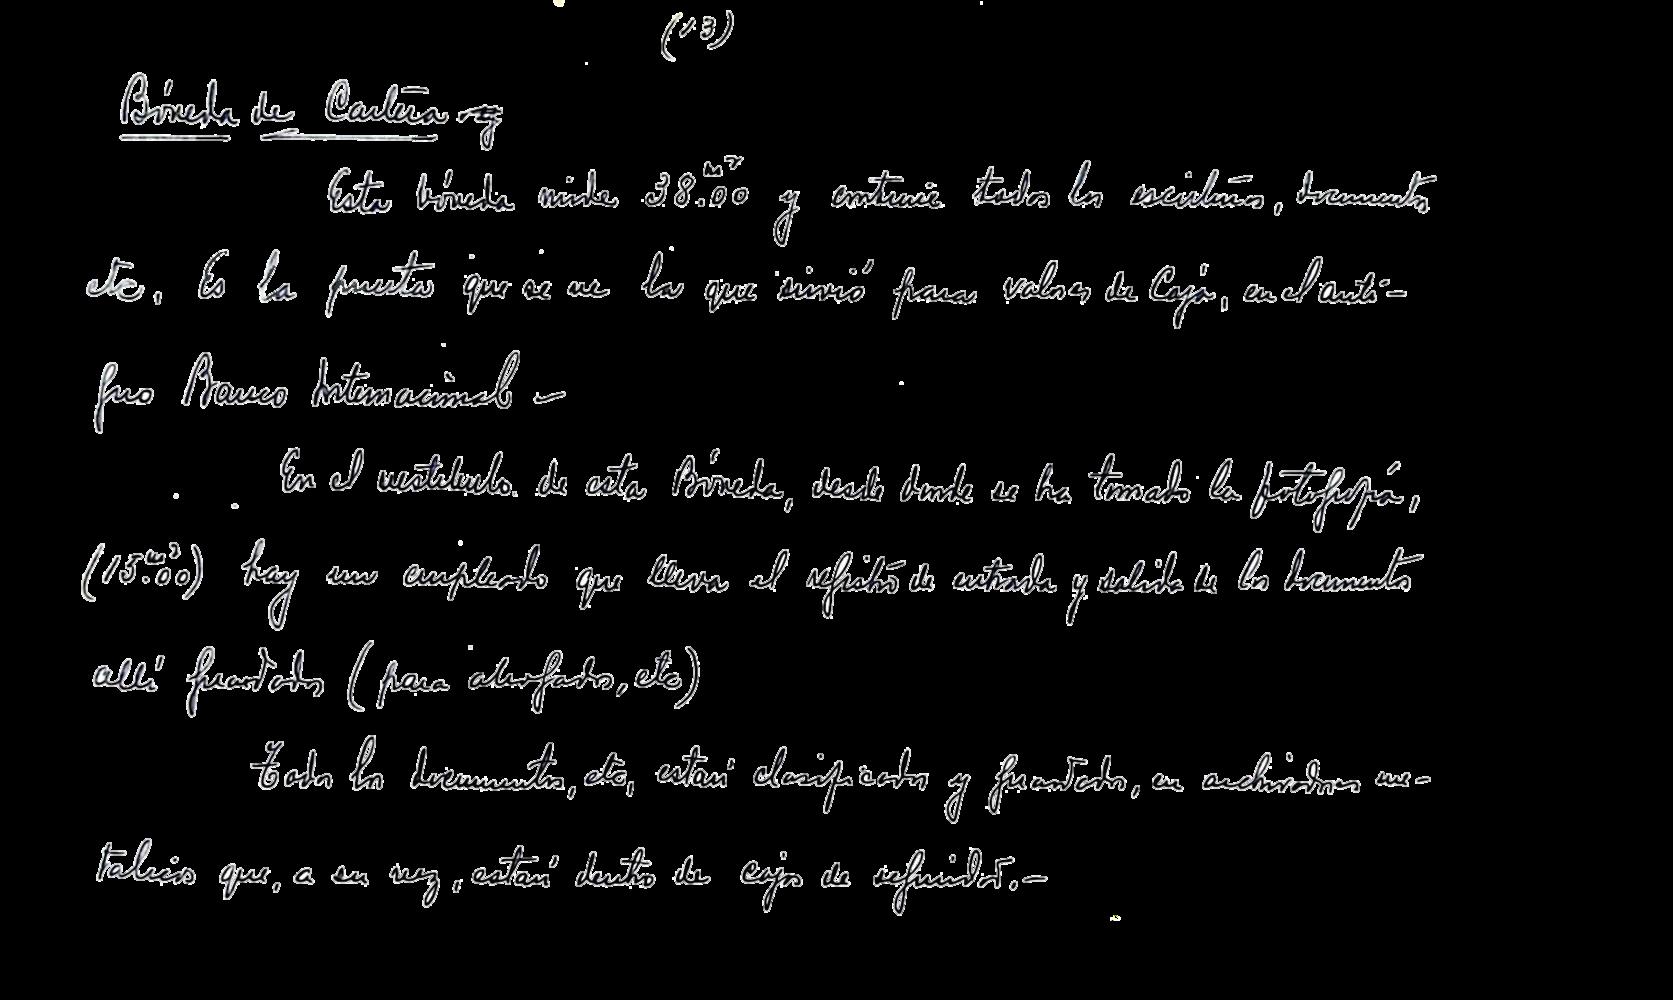 (13)
Bóveda de Cartera
Esta bóveda mide 38.00 m² y contiene todos los escritorios, documentos
etc. Es la puerta que se ve la que sirvió para valores de Caja, en el anti-
guo Banco Internacional –
En el vestíbulo de esta Bóveda, desde donde se ha tomado la fotografía,
(15.00 m²) hay un empleado que lleva el registro de entrada y salida de los documentos
allí guardados (para abogados, etc)
Todos los documentos, etc, están clasificados y guardados, en archivadores me-
tálicos que, a su vez, están dentro de cajas de seguridad.–